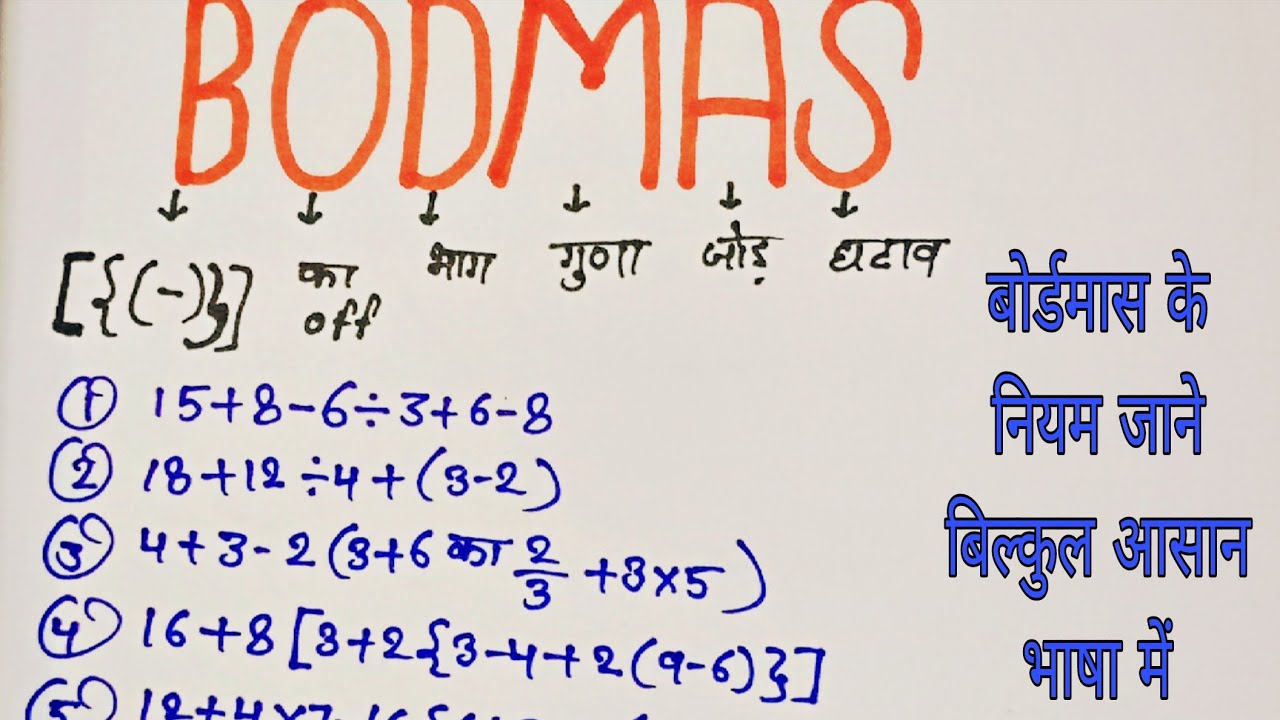 BODMAS
↓ ↓ ↓ ↓ ↓ ↓
[{(-)}] का भाग गुणा जोड़ घटाव
off
① 15+8-6÷3+6-8
② 18+12÷4+(3-2)
③ 4+3-2(3+6 का 2/3 +3×5)
④ 16+8[3+2{3-4+2(9-6)}]
⑤ 12+4×7
बोर्डमास के
नियम जाने
बिल्कुल आसान
भाषा में